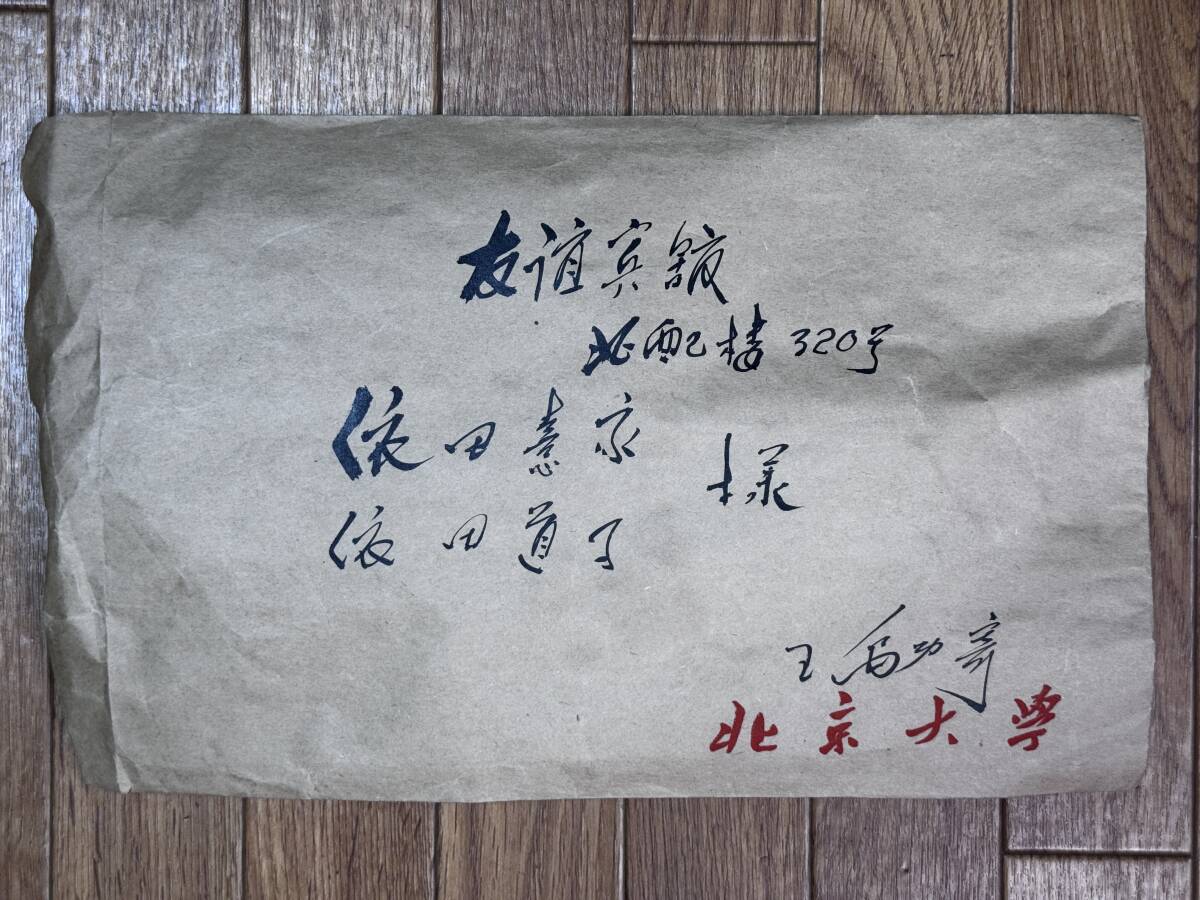 友谊宾馆
北配楼320号
依田憙家 様
依田道子
王勇
北京大学